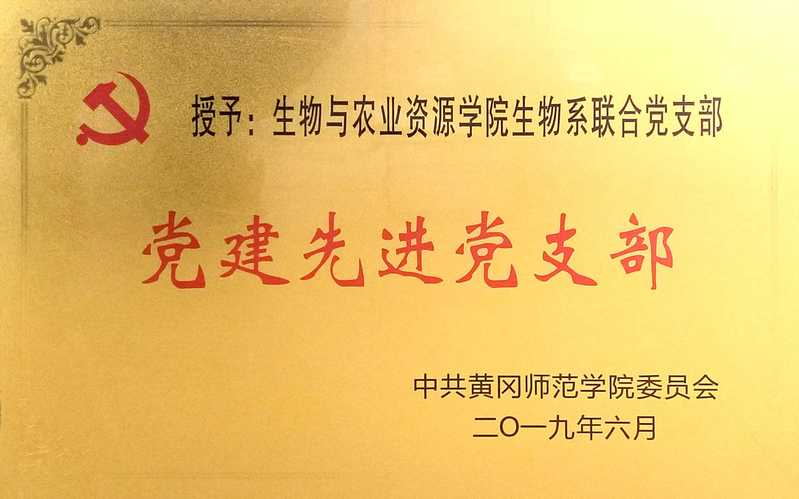 授予：生物与农业资源学院生物系联合党支部
党建先进党支部
中共黄冈师范学院委员会
二〇一九年六月